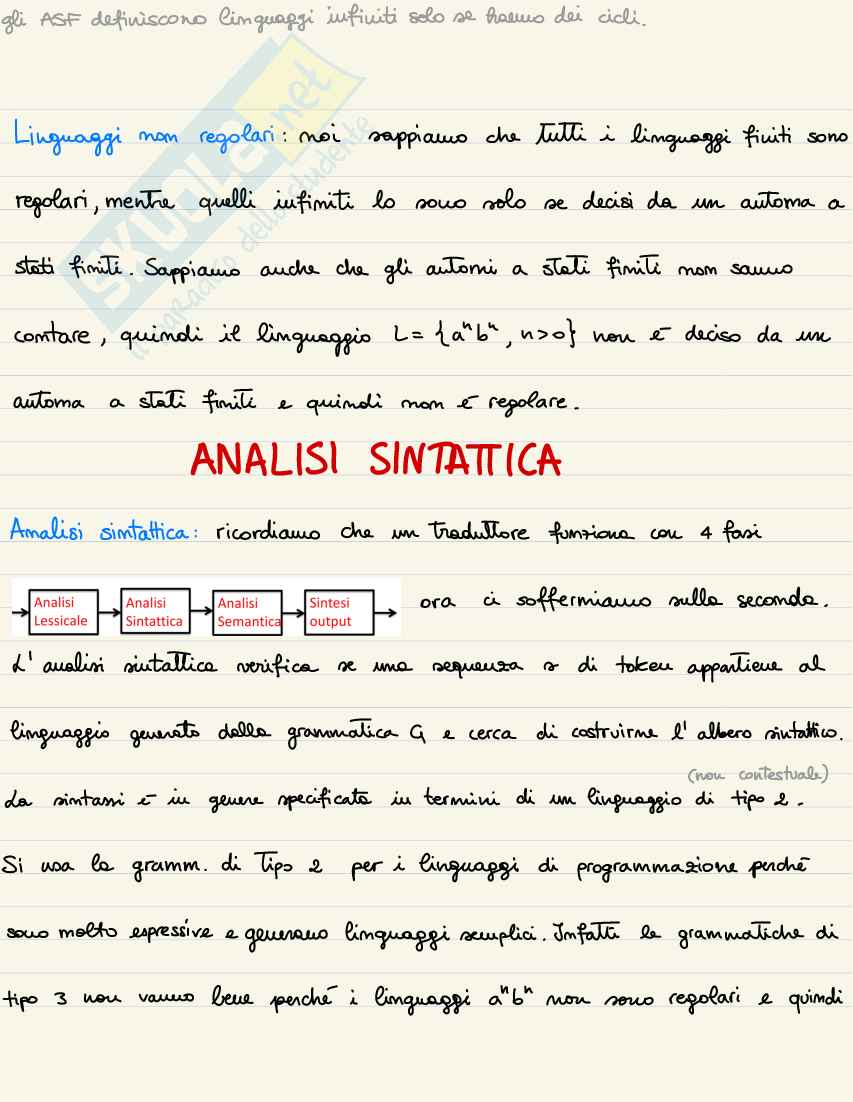 gli ASF definiscono linguaggi infiniti solo se hanno dei cicli.
SKUOLA.net
il paradiso dello studente
Linguaggi non regolari: noi sappiamo che tutti i linguaggi finiti sono
regolari, mentre quelli infiniti lo sono solo se decisi da un automa a
stati finiti. Sappiamo anche che gli automi a stati finiti non sanno
contare, quindi il linguaggio L = {aⁿbⁿ, n>0} non è deciso da un
automa a stati finiti e quindi non è regolare.
ANALISI SINTATTICA
Analisi sintattica: ricordiamo che un traduttore funziona con 4 fasi
Analisi Lessicale
Analisi Sintattica
Analisi Semantica
Sintesi output
ora ci soffermiamo sulla seconda.
L'analisi sintattica verifica se una sequenza s di token appartiene al
linguaggio generato dalla grammatica G e cerca di costruirne l'albero sintattico.
(non contestuale)
La sintassi è in genere specificata in termini di un linguaggio di tipo 2.
Si usa la gramm. di Tipo 2 per i linguaggi di programmazione perché
sono molto espressive e generano linguaggi semplici. Infatti le grammatiche di
tipo 3 non vanno bene perché i linguaggi aⁿbⁿ non sono regolari e quindi